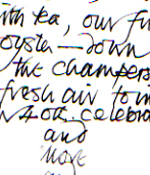 ith tea, our fi
oyster — down
the champers
fresh air to in
40th. celebra
and
more